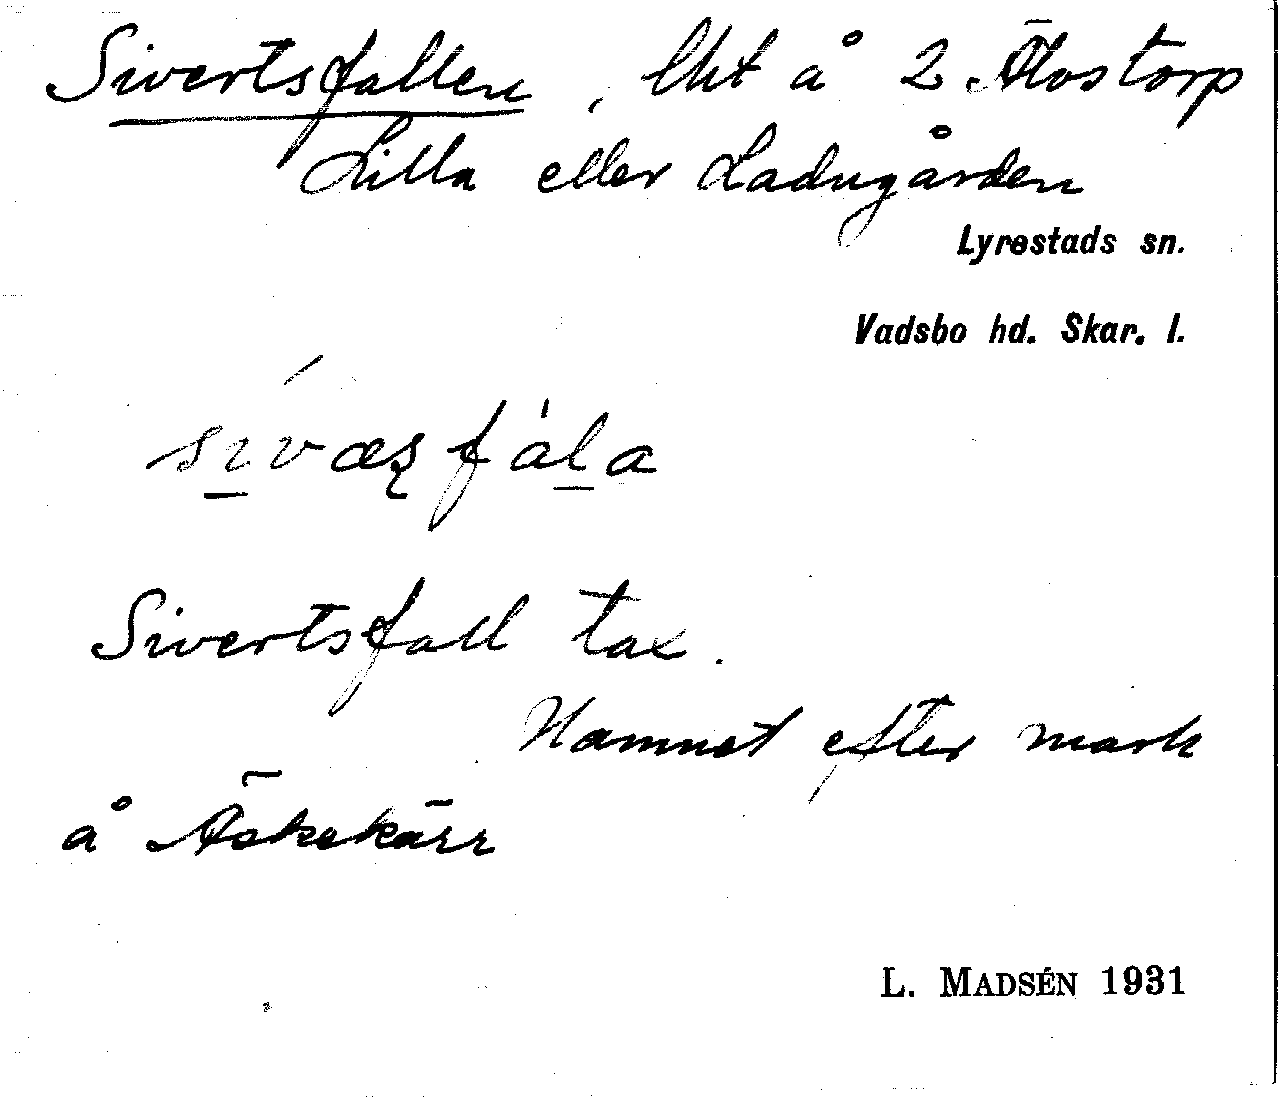 Sivertsfallen, lht å 2 Älvstorp
Lilla eller Ladugården
Lyrestads sn.
Vadsbo hd. Skar. l.
sìvæʂfála
Sivertsfall tax.
Namnet efter mark
å Äskekärr
L. MADSÉN 1931